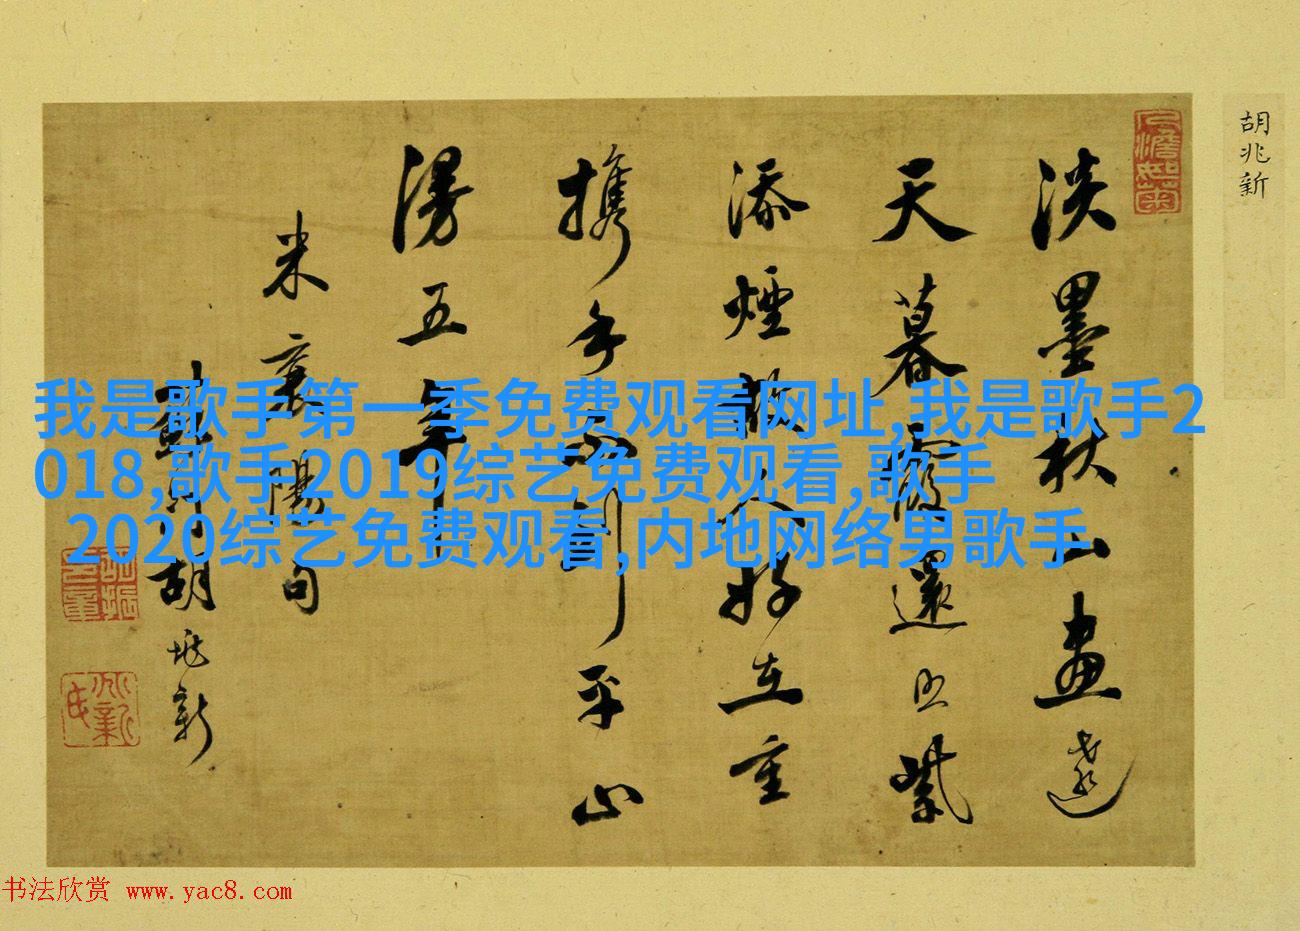 胡兆新
淡墨秋山畫遠
天暮霞還照紫
添煙故人好在重
攜手不到平山
漫五年
米襄陽句
胡兆新
我是歌手第一季免费观看网址,我是歌手2
018,歌手2019综艺免费观看,歌手
2020综艺免费观看,内地网络男歌手
书法欣赏 www.yac8.com